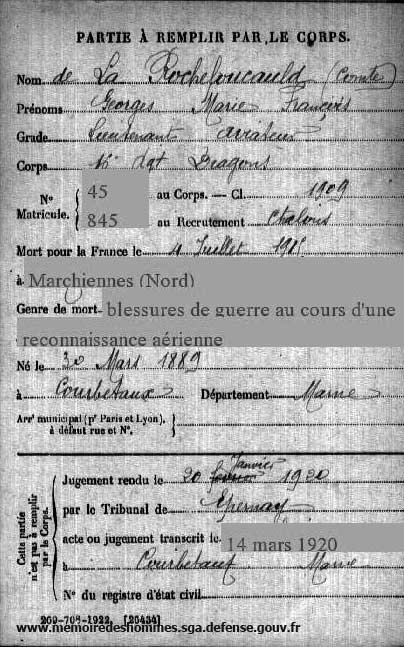 PARTIE À REMPLIR PAR LE CORPS.
Nom de La Rochefoucauld (Comte)
Prénoms Georges Marie François
Grade Lieutenant aviateur
Corps 16e Rgt Dragons
N° Matricule. { 45 au Corps. — Cl. 1909
845 au Recrutement Chalons
Mort pour la France le 4 Juillet 1915
à Marchiennes (Nord)
Genre de mort blessures de guerre au cours d'une
reconnaissance aérienne
Né le 30 Mars 1889
à Courbetaux Département Marne
Arrt municipal (pr Paris et Lyon), }
à défaut rue et N°.
Cette partie n'est pas à remplir par le Corps.
Jugement rendu le 20 Janvier 1920
par le Tribunal de Epernay
acte ou jugement transcrit le 14 mars 1920
à Courbetaux Marne
N° du registre d'état civil
269-708-1922. [26434]
www.memoiredeshommes.sga.defense.gouv.fr